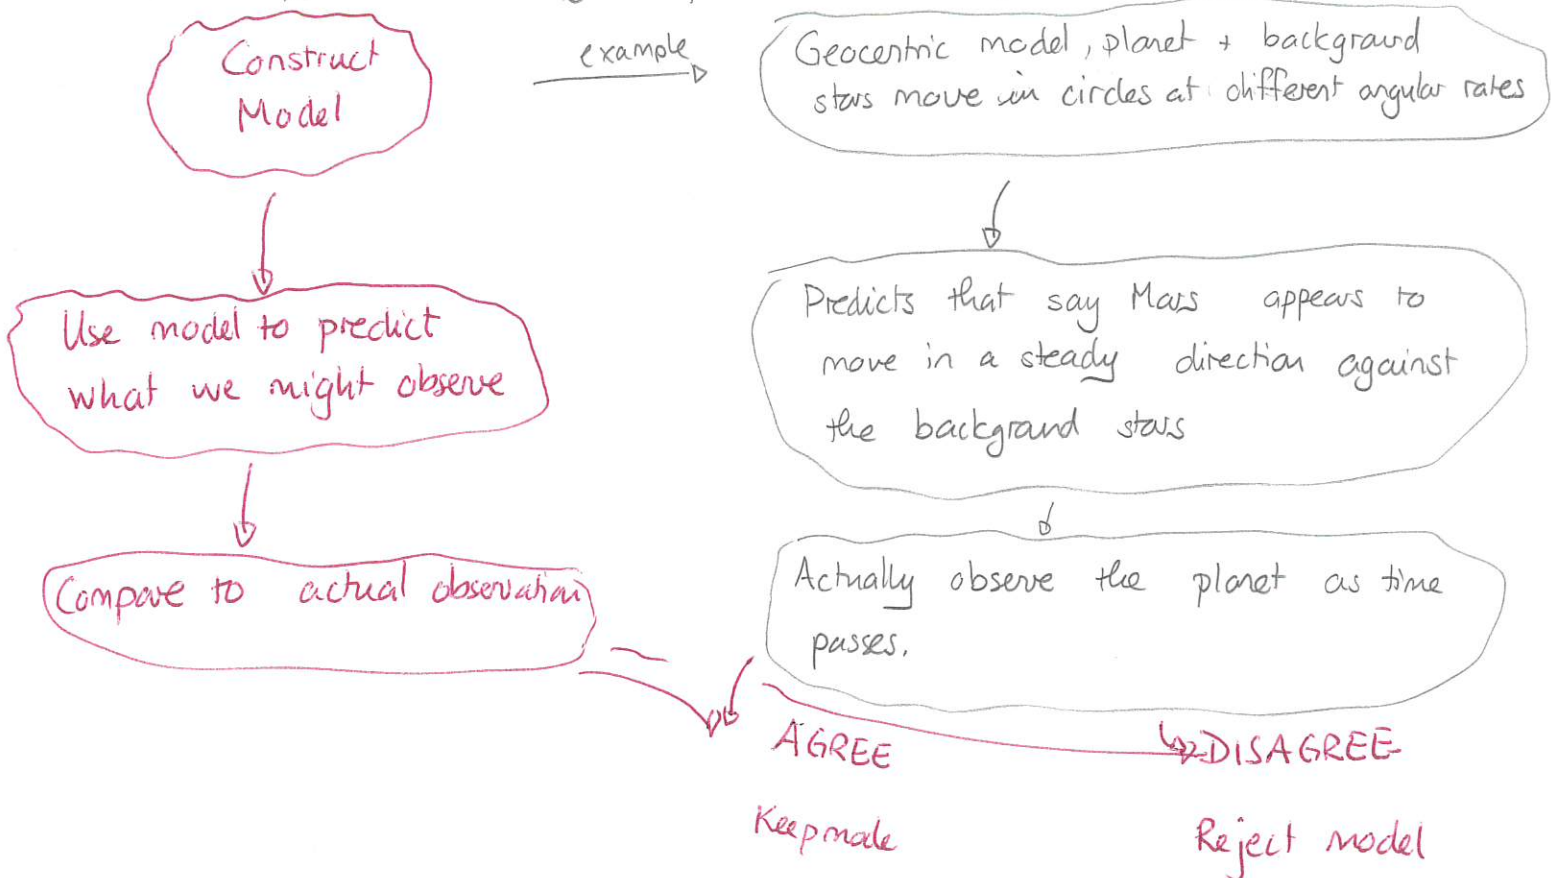 Construct
Model
example
Geocentric model, planet + background
stars move in circles at different angular rates
Use model to predict
what we might observe
Predicts that say Mars appears to
move in a steady direction against
the background stars
Compare to actual observation
Actually observe the planet as time
passes.
AGREE
DISAGREE
Keep mode
Reject model